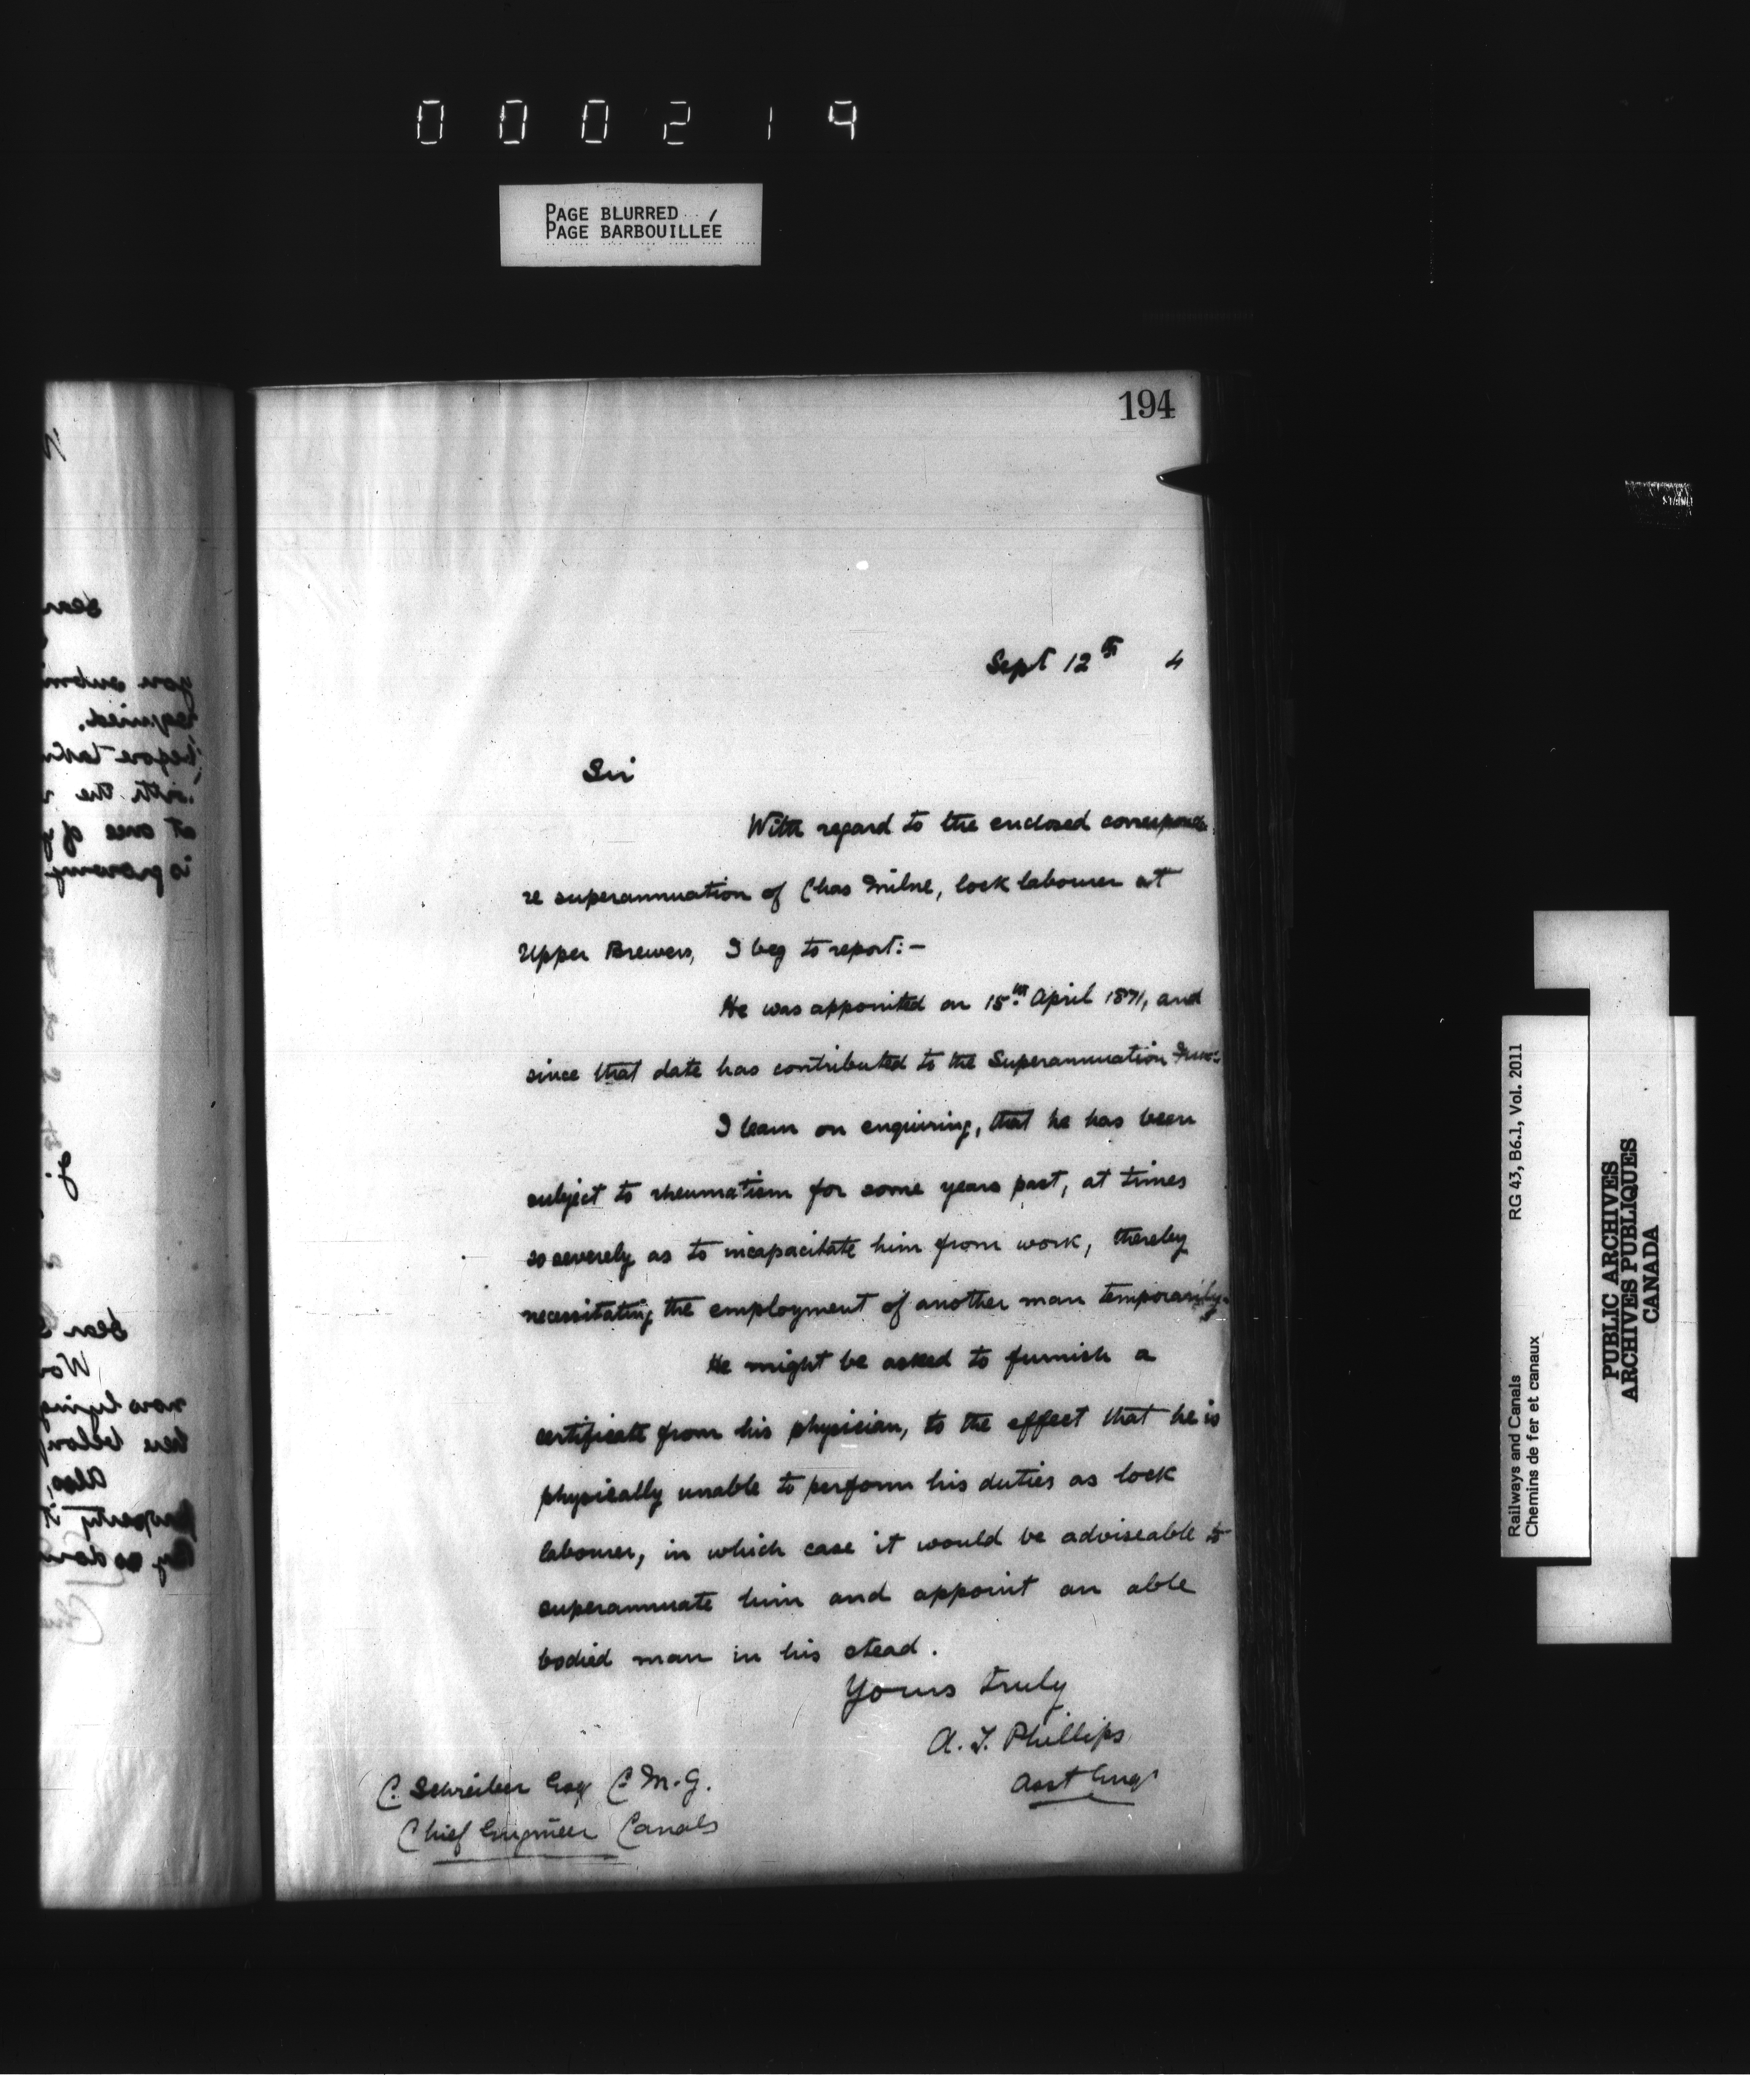 000219
PAGE BLURRED
PAGE BARBOUILLÉE
194
Sept 12th 4
Sir
With regard to the enclosed
re superannuation of Chas Milne, lock labourer at
Upper Brewers, I beg to report:-
He was appointed on 15th April 1871, and
since that date has contributed to the Superannuation
I learn on enquiring, that he has been
subject to rheumatism for some years past, at times
so severely as to incapacitate him from work, thereby
necessitating the employment of another man temporarily.
He might be asked to furnish a
certificate from his physician, to the effect that he is
physically unable to perform his duties as lock
labourer, in which case it would be adviseable to
superannuate him and appoint an able
bodied man in his stead.
Yours truly
A. T. Phillips
Asst Engr
C. Schreiber Esq C.M.G.
Chief Engineer Canals
Railways and Canals RG 43, B6.1, Vol. 2011
Chemins de fer et canaux
PUBLIC ARCHIVES
ARCHIVES PUBLIQUES
CANADA